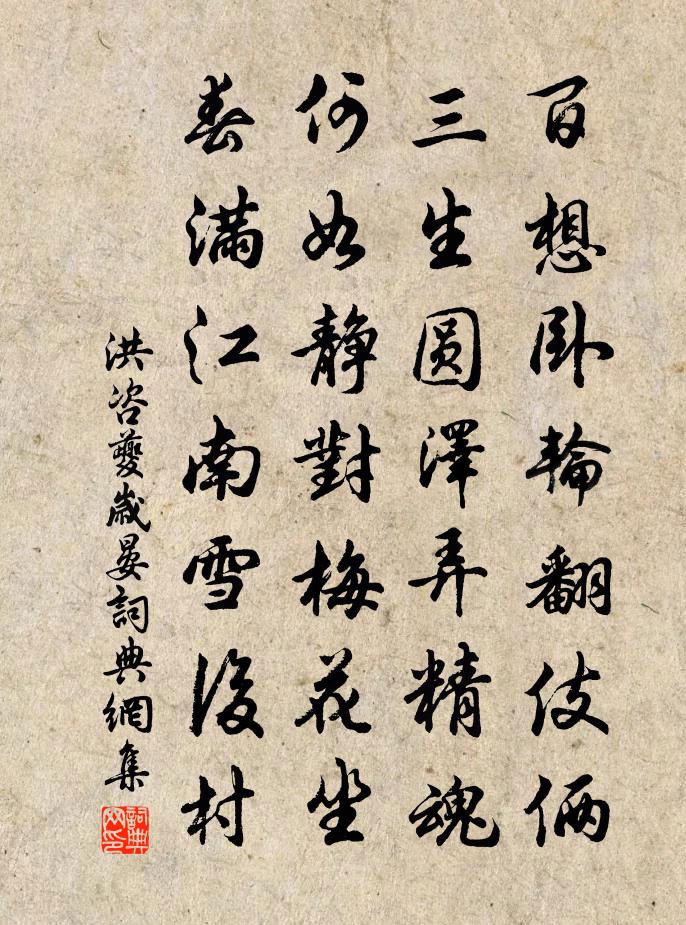 百想卧輪翻伎倆
三生圓澤弄精魂
何如靜對梅花坐
春滿江南雪後村
洪咨夔歲晏詞典網集
詞典网印